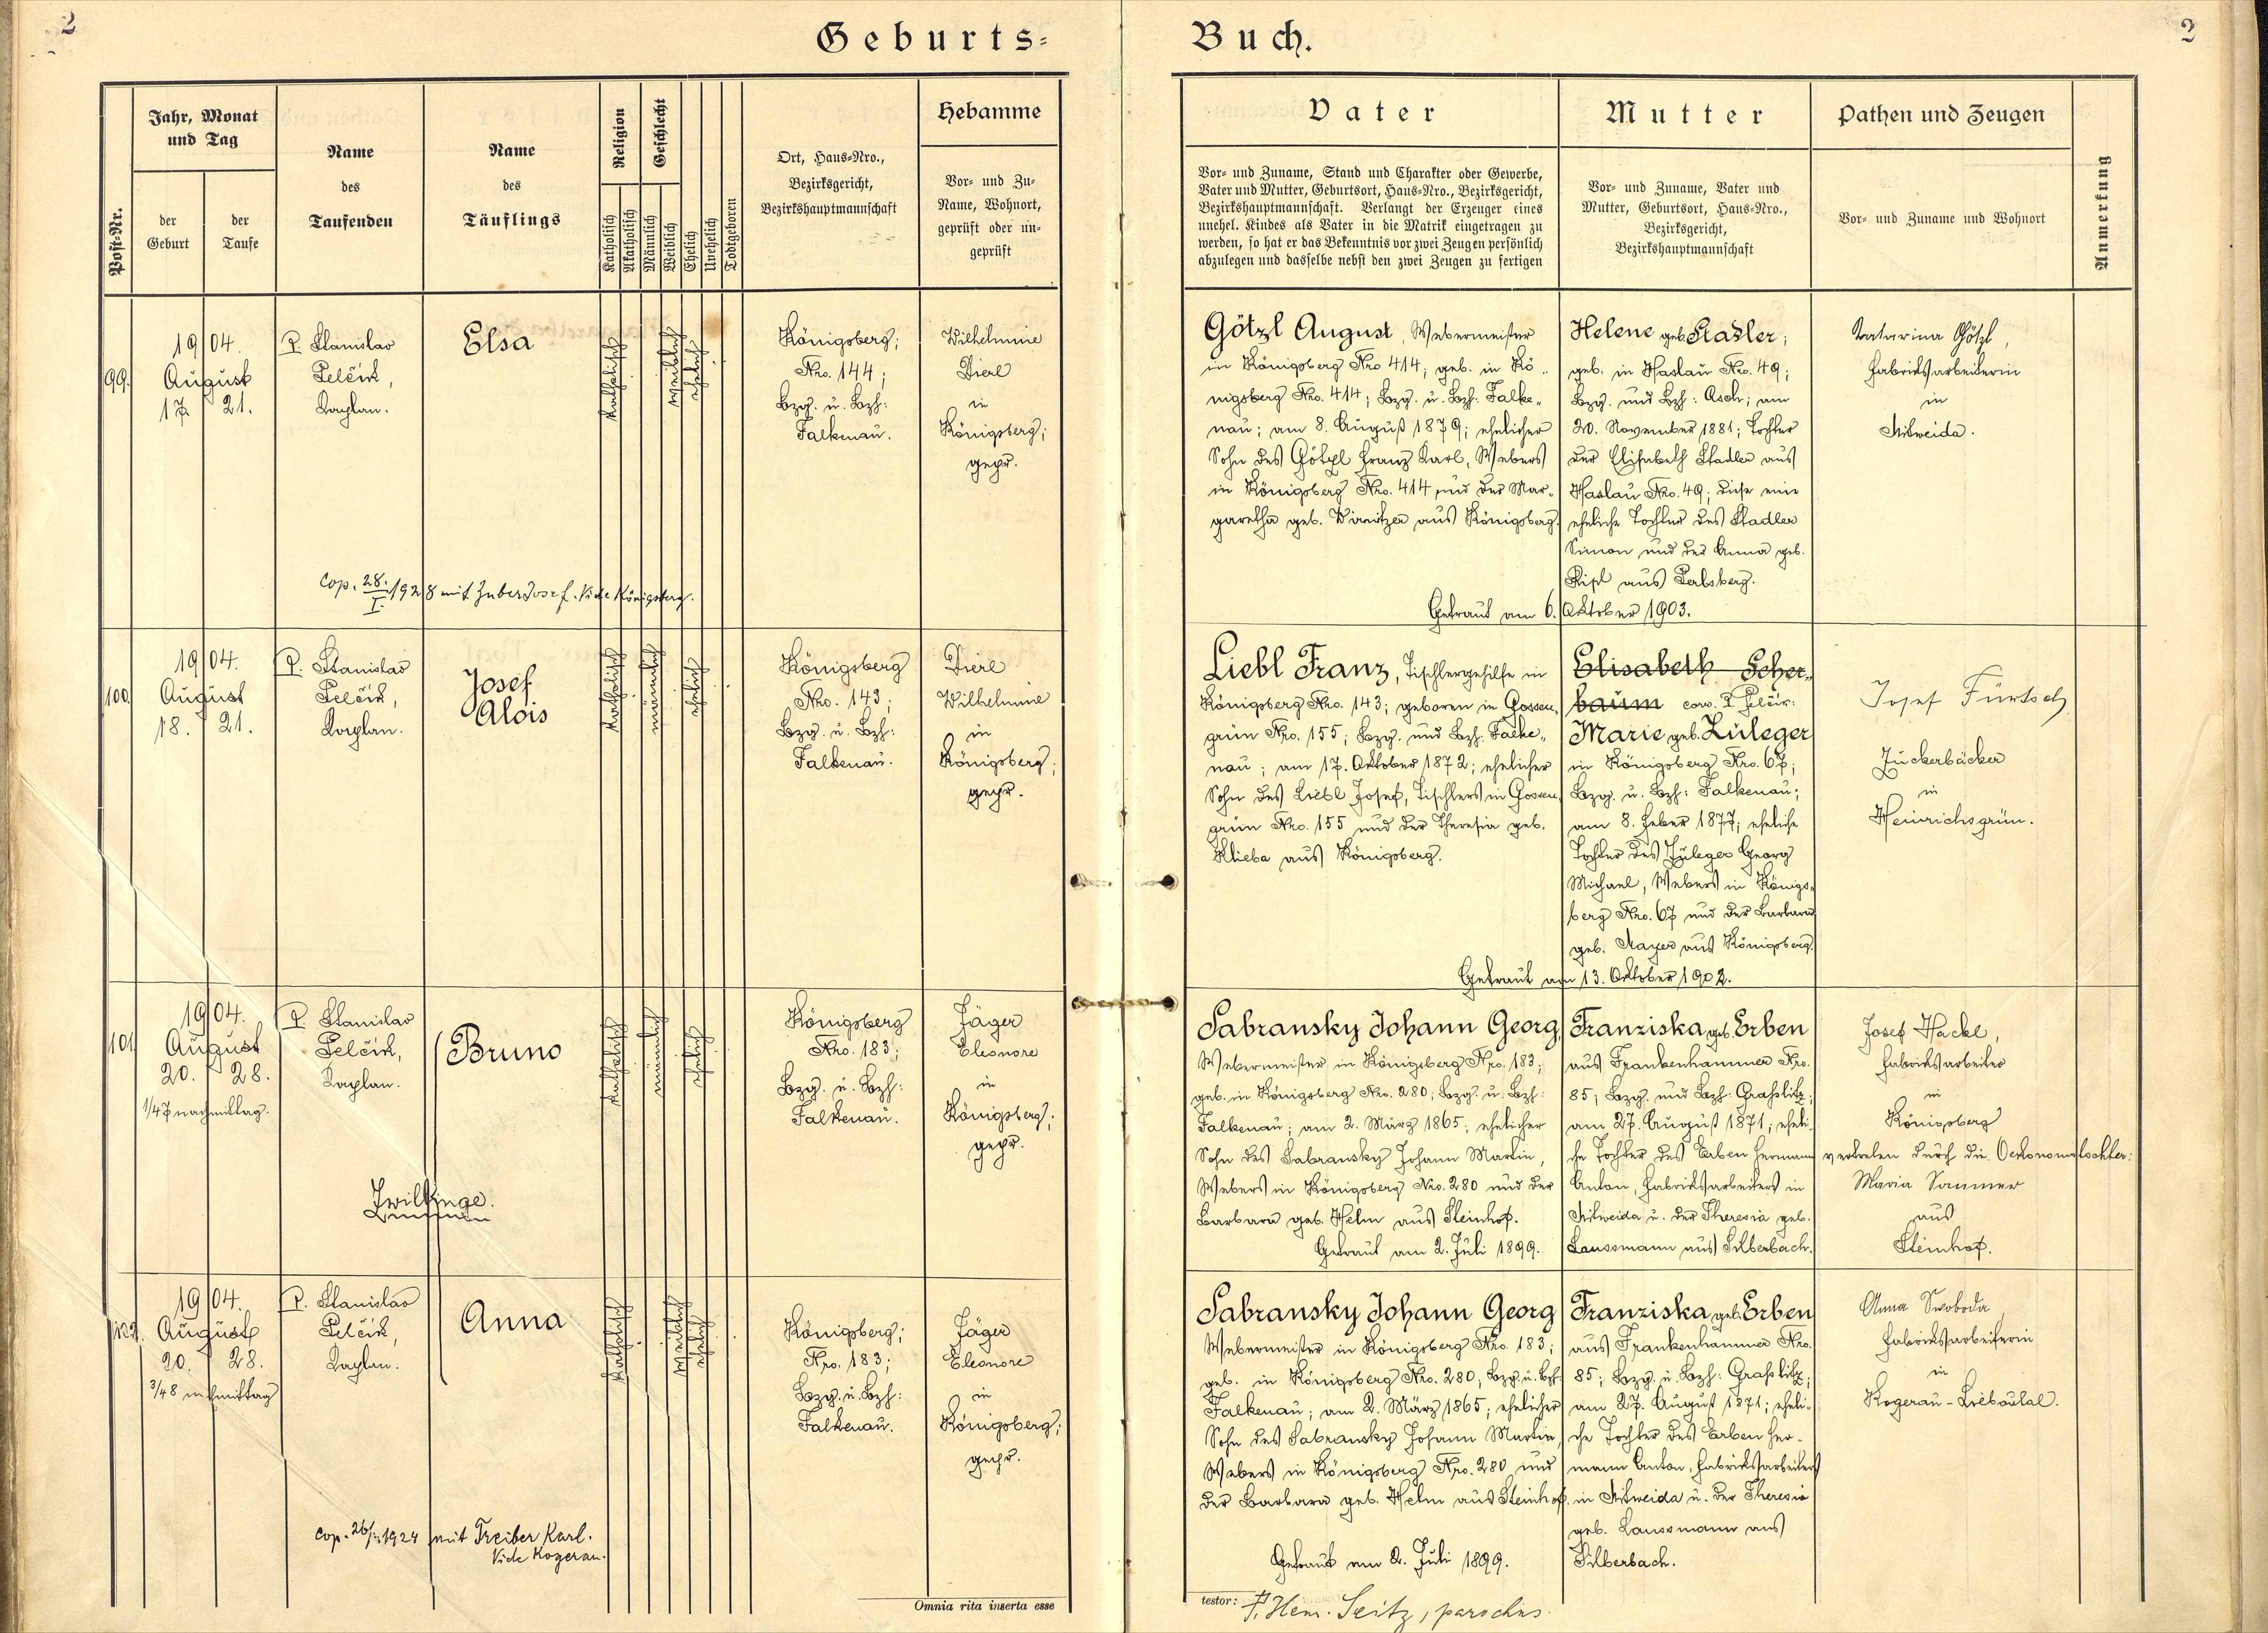 2
Geburts=
Buch.
2
Post-Nr.
Jahr, Monat
und Tag
der
Geburt
der
Taufe
Name
des
Taufenden
Name
des
Täuflings
Religion
Katholisch
Akatholisch
Geschlecht
Männlich
Weiblich
Ehelich
Unehelich
Todtgeboren
Ort, Haus=Nro.,
Bezirksgericht,
Bezirkshauptmannschaft
Hebamme
Vor= und Zu=
Name, Wohnort,
geprüft oder un=
geprüft
Vater
Vor= und Zuname, Stand und Charakter oder Gewerbe,
Vater und Mutter, Geburtsort, Haus=Nro., Bezirksgericht,
Bezirkshauptmannschaft. Verlangt der Erzeuger eines
unehel. Kindes als Vater in die Matrik eingetragen zu
werden, so hat er das Bekenntnis vor zwei Zeugen persönlich
abzulegen und dasselbe nebst den zwei Zeugen zu fertigen
Mutter
Vor= und Zuname, Vater und
Mutter, Geburtsort, Haus=Nro.,
Bezirksgericht,
Bezirkshauptmannschaft
Pathen und Zeugen
Vor= und Zuname und Wohnort
Anmerkung
99.
1904.
August
17. 21.
P. Stanislav
Pelčík,
Kaplan.
Elsa
katholisch
weiblich
ehelich
Königsberg;
Nro. 144;
Bzg. u. Bzh:
Falkenau.
Wilhelmine
Dierl
in
Königsberg;
gepr.
Götzl August, Webermeister
in Königsberg Nro 414; geb. in Kö„
nigsberg Nro. 414; Bzg. u. Bzh: Falke„
nau; am 8. August 1879; ehelicher
Sohn des Götzl Franz Karl, Webers
in Königsberg Nro. 414 und der Mar„
garetha geb. Wirnitzer aus Königsberg.
Helene geb. Stadler;
geb. in Haslau Nro. 49;
Bzg. und Bzh: Asch; am
20. November 1881; Tochter
der Elisabeth Stadler aus
Haslau Nro. 49; diese eine
eheliche Tochter des Stadler
Simon und der Anna geb.
aus
Getraut am 6. Oktober 1903.
Katarina Götzl,
Fabriksarbeiterin
in
Nitweida.
cop. 28./I. 1928 mit Zuber Josef. Vide Königsberg.
100.
1904.
August
18. 21.
P. Stanislav
Pelčík,
Kaplan.
Josef
Alois
katholisch
männlich
ehelich
Königsberg
Nro. 143;
Bzg. u. Bzh:
Falkenau.
Dierl
Wilhelmine
in
Königsberg;
gepr.
Liebl Franz, Tischlergehilfe in
Königsberg Nro. 143; geboren in Gossen„
grün Nro. 155; Bzg. und Bzh. Falke„
nau; am 17. Oktober 1872; ehelicher
Sohn des Liebl Josef, Tischlers in Gossen„
grün Nro. 155 und der Theresia geb.
Klieba aus Königsberg.
Elisabeth Scher„
baum corr. P. Pelčík:
Marie geb. Züleger
in Königsberg Nro. 67;
Bzg. u. Bzh: Falkenau;
am 8. Feber 1877; eheliche
Tochter des Züleger Georg
Michael, Webers in Königs„
berg Nro. 67 und der Barbara
geb. Mayer aus Königsberg.
Getraut am 13. Oktober 1902.
Josef Fürtsch
Zuckerbäcker
in
Heinrichsgrün.
101.
1904.
August
20. 28.
1/4 7 nachmittag.
P. Stanislav
Pelčík,
Kaplan.
Bruno
katholisch
männlich
ehelich
Königsberg
Nro. 183;
Bzg. u. Bzh:
Falkenau.
Jäger
Eleonore
in
Königsberg;
gepr.
Sabransky Johann Georg,
Webermeister in Königsberg Nro. 183;
geb. in Königsberg Nro. 280; Bzg. u. Bzh:
Falkenau; am 2. März 1865; ehelicher
Sohn des Sabransky Johann Martin,
Webers in Königsberg Nro. 280 und der
Barbara geb. Helm aus Steinhof.
Getraut am 2. Juli 1899.
Franziska geb. Erben
aus Frankenhammer Nro.
85; Bzg. und Bzh: Graslitz;
am 27. August 1871; eheli-
che Tochter des Erben Hermann
Anton, Fabriksarbeiters in
Nitweida u. der Theresia geb.
Laussmann aus Silberbach.
Josef Hackl,
Fabriksarbeiter
in
Königsberg
vertreten durch die Oekonomstochter:
Maria Sommer
aus
Steinhof.
Zwillinge.
102.
1904.
August
20. 28.
3/4 8 nachmittag
P. Stanislav
Pelčík,
Kaplan.
Anna
katholisch
weiblich
ehelich
Königsberg;
Nro. 183;
Bzg. u. Bzh:
Falkenau.
Jäger
Eleonore
in
Königsberg;
gepr.
Sabransky Johann Georg
Webermeister in Königsberg Nro. 183;
geb. in Königsberg Nro. 280; Bzg. u. Bzh:
Falkenau; am 2. März 1865; ehelicher
Sohn des Sabransky Johann Martin,
Webers in Königsberg Nro. 280 und
der Barbara geb. Helm aus Steinhof.
Getraut am 2. Juli 1899.
Franziska geb. Erben
aus Frankenhammer Nro.
85; Bzg. u. Bzh: Graslitz;
am 27. August 1871; eheli-
che Tochter des Erben Her-
mann Anton, Fabriksarbeiters
in Nitweida u. der Theresia
geb. Laussmann aus
Silberbach.
Anna Swoboda
Fabriksarbeiterin
in
Kogerau-Liebautal.
cop. 26/ 1924 mit Treiber Karl.
Vide Kogerau.
Omnia rita inserta esse
testor: P. Hem. Seitz, parochus.